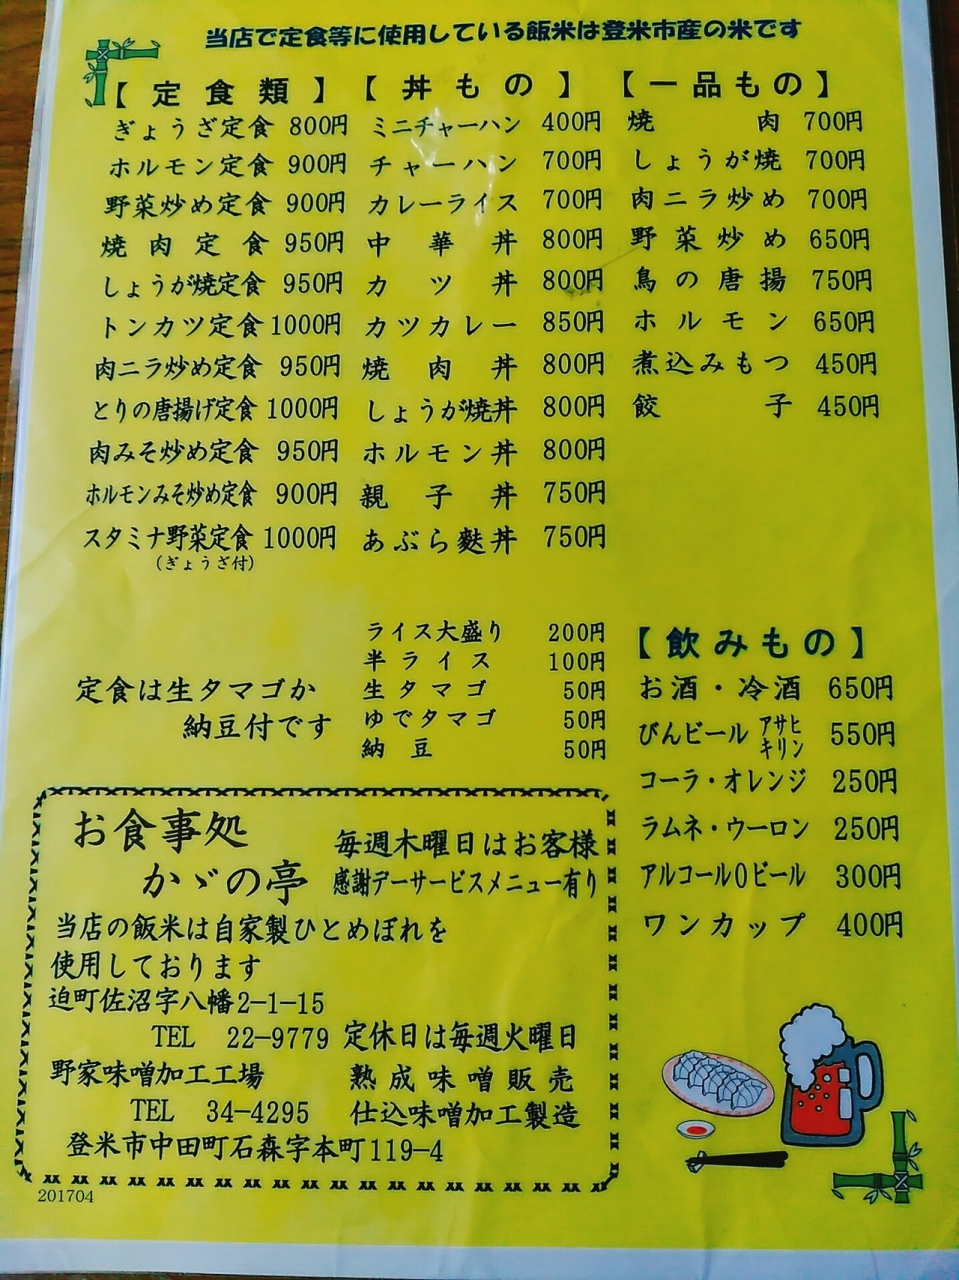 当店で定食等に使用している飯米は登米市産の米です
【定食類】
ぎょうざ定食 800円
ホルモン定食 900円
野菜炒め定食 900円
焼肉定食 950円
しょうが焼定食 950円
トンカツ定食 1000円
肉ニラ炒め定食 950円
とりの唐揚げ定食 1000円
肉みそ炒め定食 950円
ホルモンみそ炒め定食 900円
スタミナ野菜定食 1000円
(ぎょうざ付)
定食は生タマゴか
納豆付です
【丼もの】
ミニチャーハン 400円
チャーハン 700円
カレーライス 700円
中華丼 800円
カツ丼 800円
カツカレー 850円
焼肉丼 800円
しょうが焼丼 800円
ホルモン丼 800円
親子丼 750円
あぶら麩丼 750円
ライス大盛り 200円
半ライス 100円
生タマゴ 50円
ゆでタマゴ 50円
納豆 50円
【一品もの】
焼肉 700円
しょうが焼 700円
肉ニラ炒め 700円
野菜炒め 650円
鳥の唐揚 750円
ホルモン 650円
煮込みもつ 450円
餃子 450円
【飲みもの】
お酒・冷酒 650円
びんビール アサヒ キリン 550円
コーラ・オレンジ 250円
ラムネ・ウーロン 250円
アルコール0ビール 300円
ワンカップ 400円
お食事処
かゞの亭
毎週木曜日はお客様
感謝デーサービスメニュー有り
当店の飯米は自家製ひとめぼれを
使用しております
迫町佐沼字八幡2-1-15
TEL 22-9779 定休日は毎週火曜日
野家味噌加工工場 熟成味噌販売
TEL 34-4295 仕込味噌加工製造
登米市中田町石森字本町119-4
201704